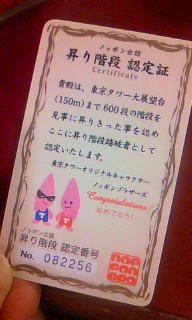 ノッポン公認
昇り階段 認定証
Certificate
貴殿は、東京タワー大展望台
(150m)まで600段の階段を
見事に昇りきった事を認め
ここに昇り階段踏破者として
認定いたします。
東京タワーオリジナルキャラクター
ノッポンブラザーズ
Congratulations!
おめでとう!
ノッポン公認
昇り階段 認定番号
No. 082256